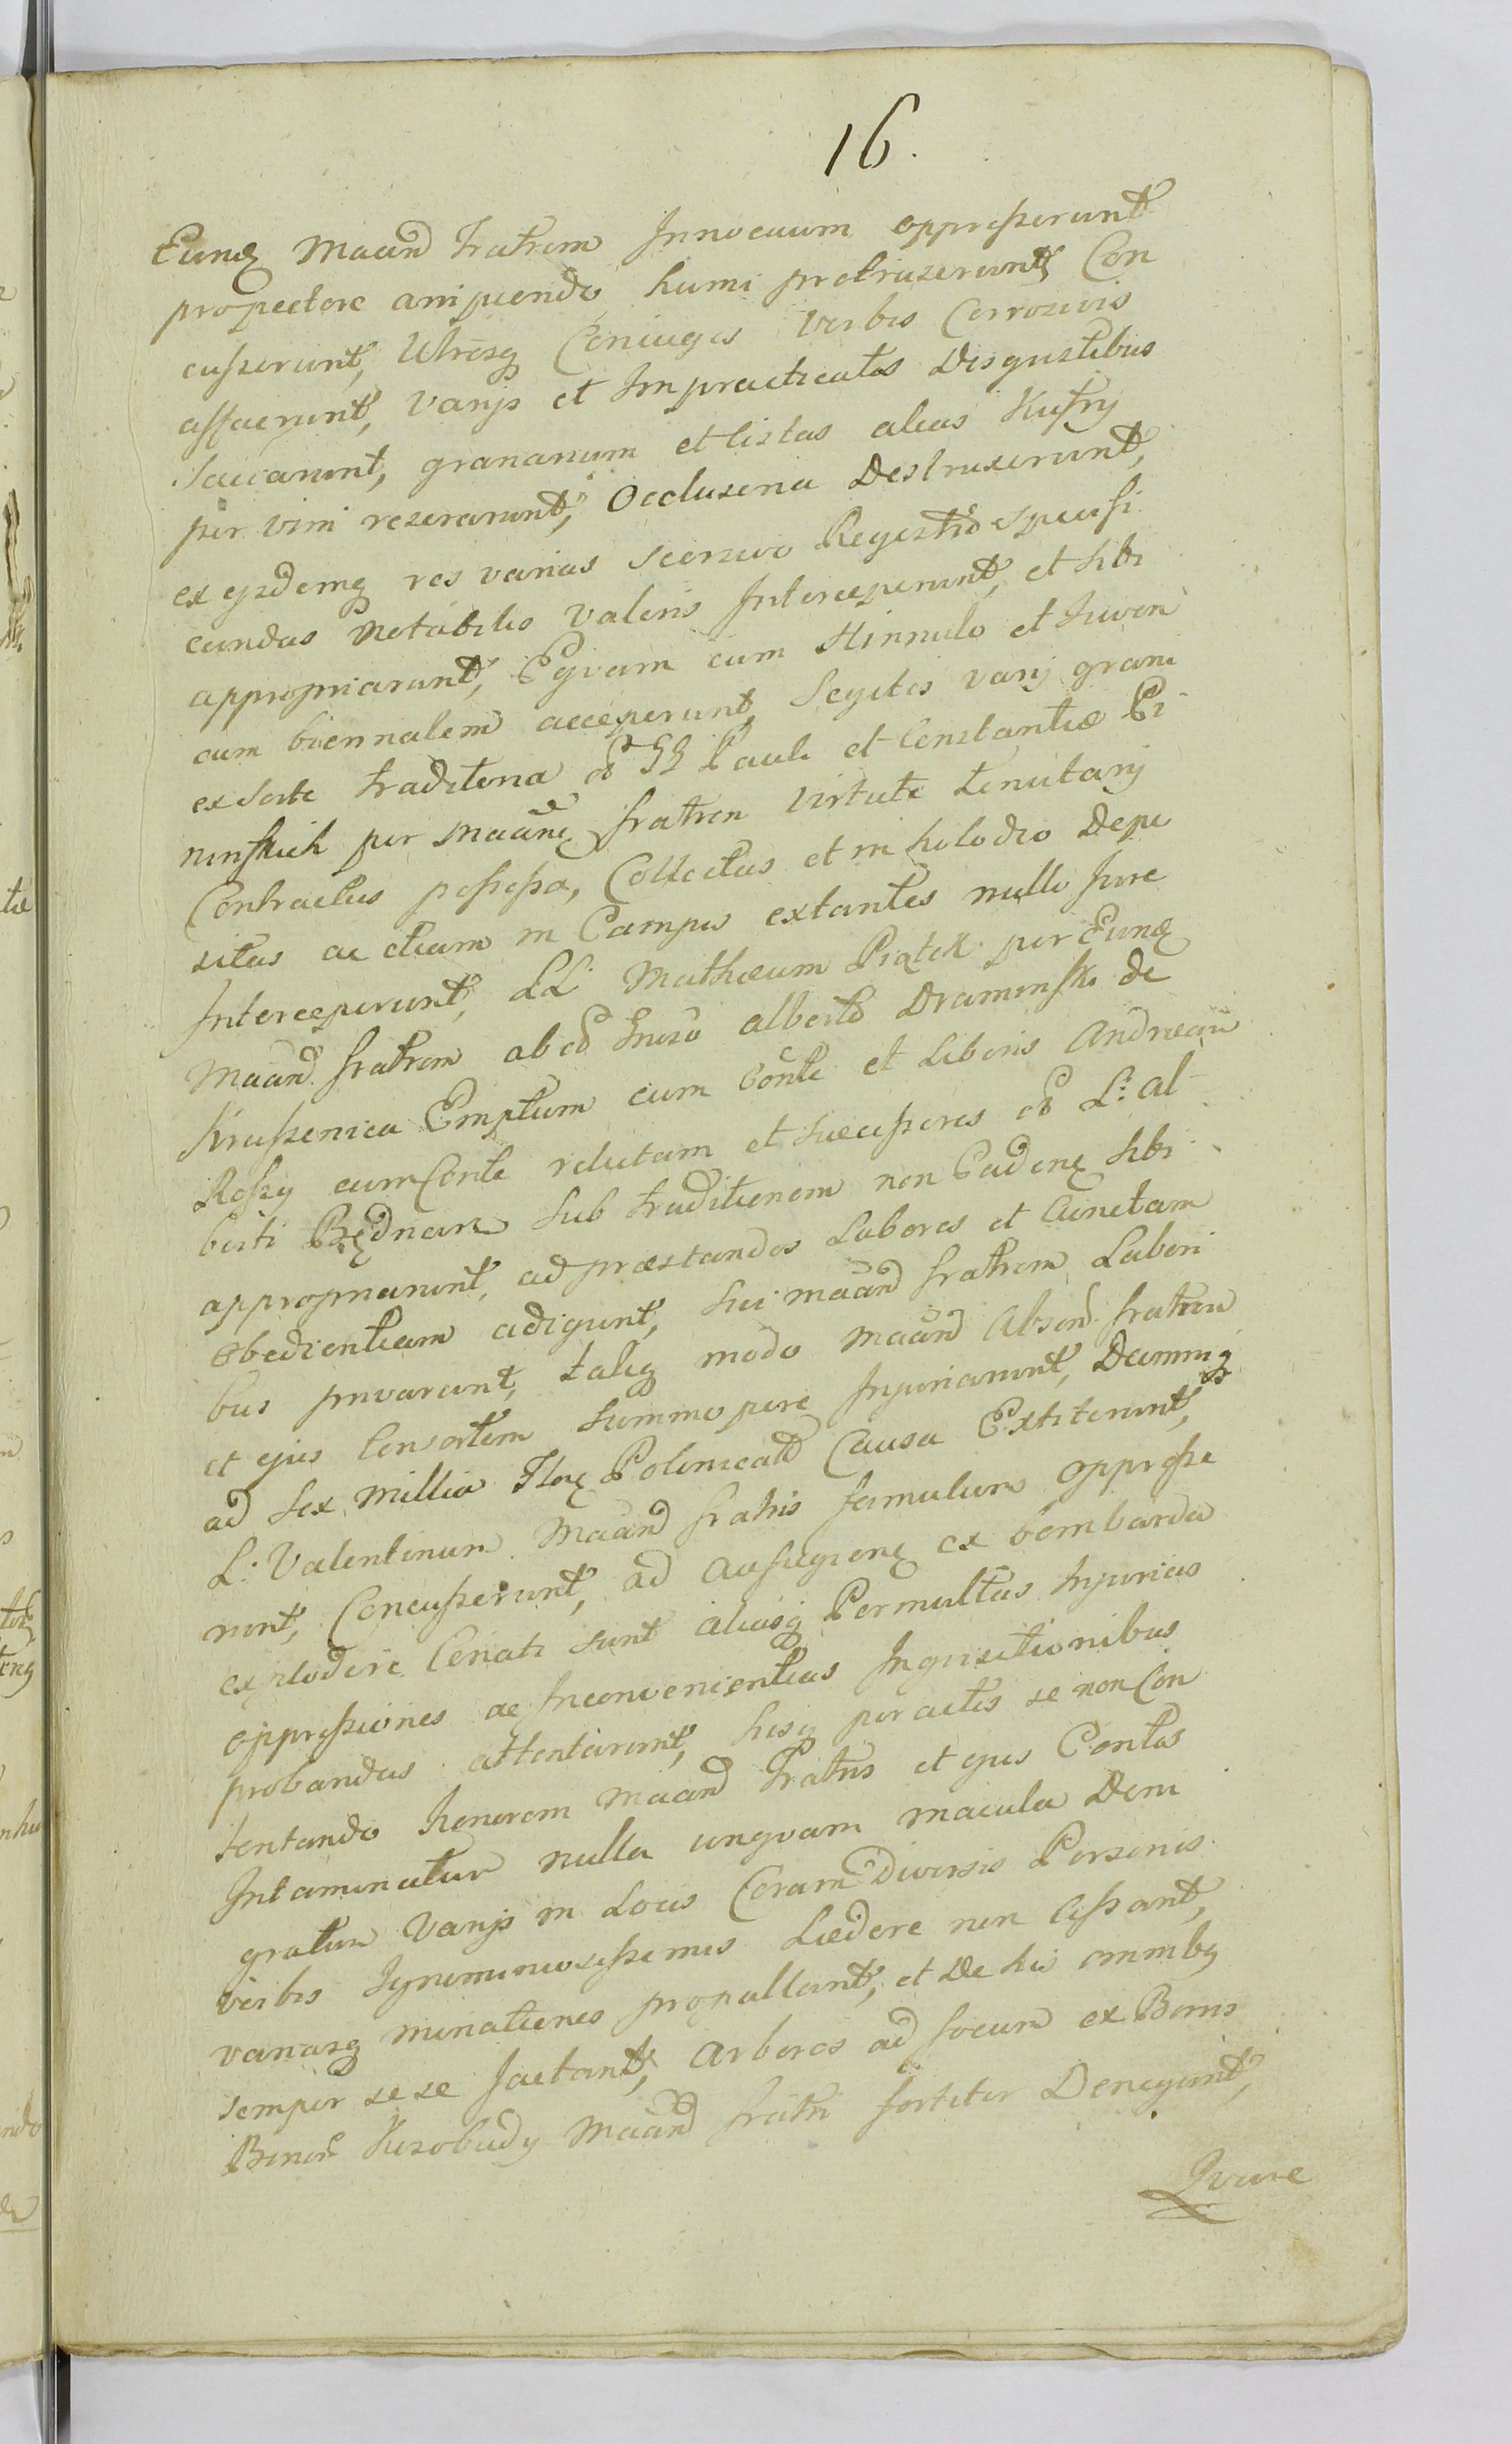 16.
Eunq Maand Fratrem Innocuum oppresserunt
propectore arripiendo, humi protruserunt Con
cusserunt, Utrosq Coniuges Verbis Corrosivis
affecerunt, Varijs et Impracticatis Disgustibus
Sauciarunt, granarium et Cistas alias Kufry
per vim reserarunt, Occlusoria Destruxerunt,
ex ijsdemq res varias seorsivo Regestro Specifi
candas Notabilis Valoris Interceperunt, et sibi
appropriarunt, Eqvam cum Hinnulo et Juven
cum biennalem acceperunt, Segetes varij grani
ex Sorte traditoria GG Pauli et Constantiæ Pi
ninskich per Maand fratrem Virtute Tenutarij
Contractus possessa, Collectas et in holodro Depo
sitas ac etiam in Campis extantes nullo Jure
Interceperunt, LL Mathæum Piątek per Eunq
Maand fratrem ab eod Gnroso Alberto Draminski de
Kraszenica Emptum cum Conte et Liberis Andream
Roszy cum Conte relictam et Successores L: Al
berti Będnarz Sub traditionem non Cadenq sibi
appropriarunt, ad præstandos Labores et Cunctam
obedientiam adigunt, sui Maand fratrem Labori
bus privarunt, taliq modo Maand Absend fratrem
et ejus Consortem Summopere Injuriarunt, Damniq
ad Sex Millia Flor Polonicald Causa Extiterunt,
L: Valentinum Maand fratris famulum oppresse
runt, Concusserunt, ad aufugienq ex bombarda
explodere Conati sunt aliasq Permultas Injurias
oppressiones ac Inconvenientias Inquisitionibus
probandas attentarunt, hisq peractis se non Con
tentando honorem Maand Fratris et ejus Contis
Intaminatum nulla unqvam macula Deni
gratum Varijs in Locis Coram Diversis Personis
verbis Ignominiosissimis Lædere non Cessant,
variasq minationes propallant, et De his omnibq
semper sese Jactant, Arbores ad focum ex Bonis
Bonor Kozobudy Maand fratri fortiter Denegant,
Qvare